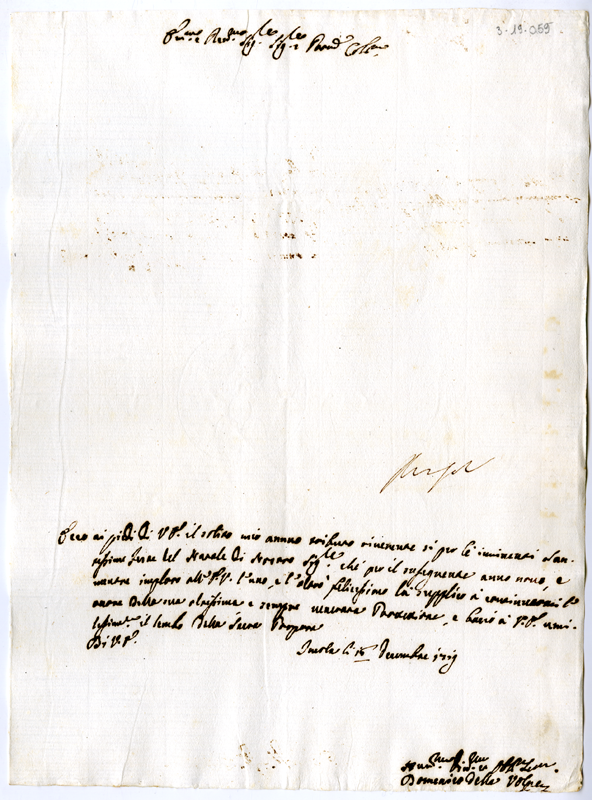 3-19.059
Em.mo e Rev.mo Sig.re Sig.re Pron.e Col.mo
Reco ai piedi di V. Em.a il solito mio annuo tributo riverente sì per le imminenti San-
tissime Feste del Natale di Nostro Sig.re che per il susseguente anno novo, e
mentre imploro all' E.V. l'uno, e l'altro felicissimo la supplico à continuarmi l'
onore della sua altissima e sempre venerata Protezzione, e bacio à V. Em.a umi-
il lembo della Sacra Porpora
Di V. Em.a
Imola li Decembre 1719
Um.mo Dev.mo Obl.mo Ser.
Domenico della Volpe